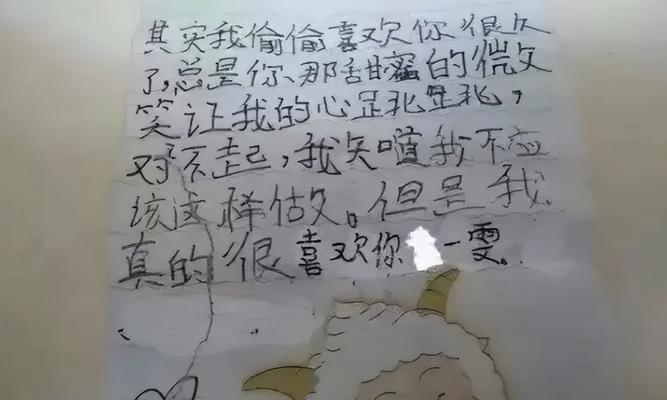 其实我偷偷喜欢你很久
了,总是你、那舌甘蜜的微文
笑让我的心足兆足兆,
对不起,我矢道我不应
该这样估攵。但是我
真的很喜欢你 一雯。